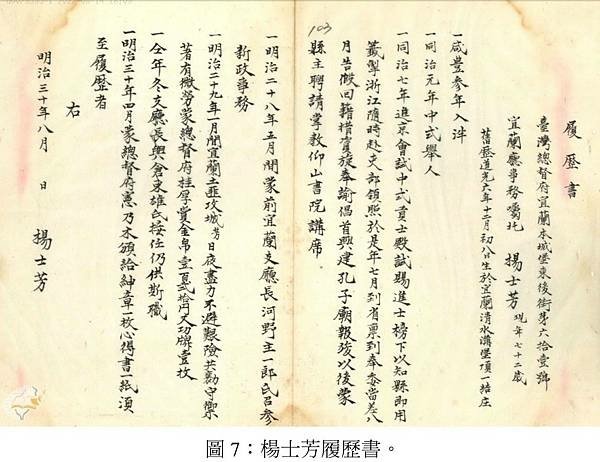 履歷書
臺灣總督府宜蘭本城堡東後街第六拾壹號
宜蘭廳事務囑托 楊士芳 現年七十二歲
舊歷道光六年十二月初八日生於宜蘭清水溝堡頂一結庄
一咸豐參年入泮
一同治元年中式舉人
一同治七年進京會試中式貢士殿試賜進士榜下以知縣即用
籤掣浙江隨時赴支部領照於是年七月到省稟到奉委當差八
月告假回籍措資旋奉諭倡首興建孔子廟報竣以後蒙
縣主聘請掌教仰山書院講席。
103
一明治二十八年五月間蒙前宜蘭支廳長河野主一郎氏召參
新政事務
一明治二十九年一月間宜蘭土匪攻城芳日夜盡力不避艱險共勷守禦
著有微勞蒙總督府挂厚賞金帛壹百貳拾円又功牌壹枚
一仝年冬支廳長興倉東雄氏接任仍供斯職
一明治三十年四月蒙總督府憲乃木頒給紳章一枚心得書一紙須
至履歷者
右
明治三十年八月 日 楊士芳
圖 7：楊士芳履歷書。